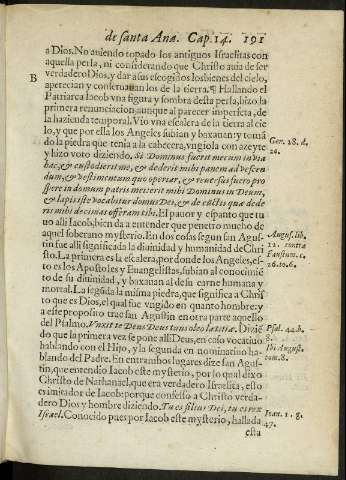 de santa Ana. Cap. 14. 191
a Dios. No auiendo topado los antiguos Israelitas con
aquella perla, ni considerando que Christo auia de ser
verdadero Dios, y dar a sus escogidos los bienes del cielo,
B
apetecian y conseruauan los de la tierra. ¶ Hallando el
Patriarca Iacob vna figura y sombra desta perla, hizo la
primera renunciacion, aunque al parecer imperfeta, de
la hazienda temporal. Vio vna escalera de la tierra al cie
lo, y que por ella los Angeles subian y baxauan: y tomã
do la piedra que tenia a la cabecera, vngiola con azeyte
Gen. 28. d.
20.
y hizo voto diziendo, Si Dominus fuerit mecum in via
hac, & custodierit me, & dederit mihi panem ad vescen
dum, & vestimentum quo operiar, & reuersus fuero pro
spere in domum patris mei: erit mihi Dominus in Deum,
& lapis iste vocabitur domus Dei, & de cūctis quæ dede
ris mihi decimas offeram tibi. El pauor y espanto que tu
uo alli Iacob, bien da a entender que penetro mucho de
aquel soberano mysterio. En dos cosas segun san Agus
August. lib.
12. contra
Faustum. c.
26. to. 6.
tin fue alli significada la diuinidad y humanidad de Chri
sto. La primera es la escalera, por donde los Angeles, es
to es los Apostoles y Euangelistas, subian al conocimiē
to de su diuinidad, y baxauan al de su carne humana y
mortal. La segūda la misma piedra, que significa a Christo
que es Dios, el qual fue vngido en quanto hombre: y
a este proposito trae san Augustin en otra parte aquello
del Psalmo. Vnxit te Deus Deus tuus oleo lætitiæ. Diziē
Psal. 44. b.
8.
do que la primera vez se pone alli Deus, en caso vocatiuo
hablando con el Hijo, y la segunda en nominatiuo ha-
Ibi August.
tom. 8.
blando del Padre. En entrambos lugares dize san Agus
tin, que entendio Iacob este mysterio, por lo qual dixo
Christo de Nathanael, que era verdadero Israelita, esto
es imitador de Iacob: porque confesso a Christo verda-
dero Dios y hombre diziendo. Tu es filius Dei, tu es rex
Ioan. 1. g.
47.
Israel. Conocido pues por Iacob este mysterio, hallada
esta